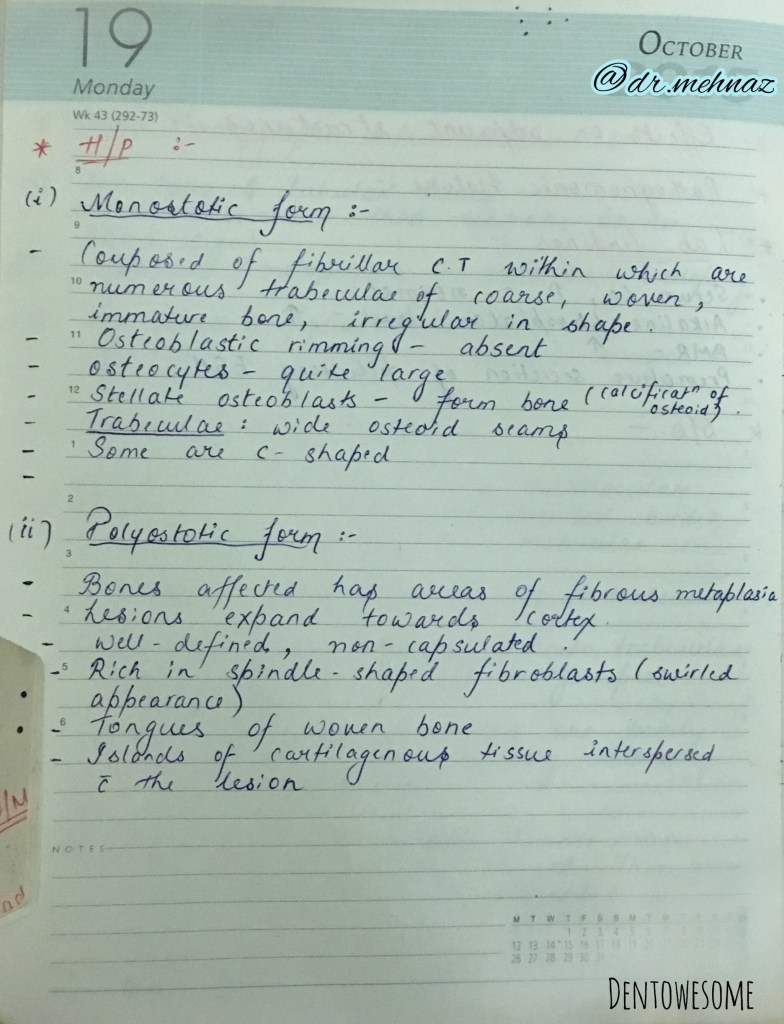 19
October
@dr.mehnaz
Monday
Wk 43 (292-73)
* H/P :-
8
(i) Monostotic form :-
9
- Composed of fibrillar C.T within which are
10 numerous trabeculae of coarse, woven,
immature bone, irregular in shape.
- 11 Osteoblastic rimming - absent
- osteocytes - quite large
- 12 Stellate osteoblasts - form bone (calcificatn of
osteoid).
- Trabeculae : wide osteoid seams
- 1 Some are c-shaped
-
2
(ii) Polyostotic form :-
3
- Bones affected has areas of fibrous metaplasia
- 4 Lesions expand towards cortex.
- well-defined, non-capsulated.
- 5 Rich in spindle-shaped fibroblasts (swirled
appearance)
- 6 Tongues of woven bone
- Islands of cartilagenous tissue interspersed
c̄ the lesion
NOTES
M T W T F S S M T W T F S S
1 2 3 4
12 13 14 15 16
26 27 28 29 30 31
DENTOWESOME